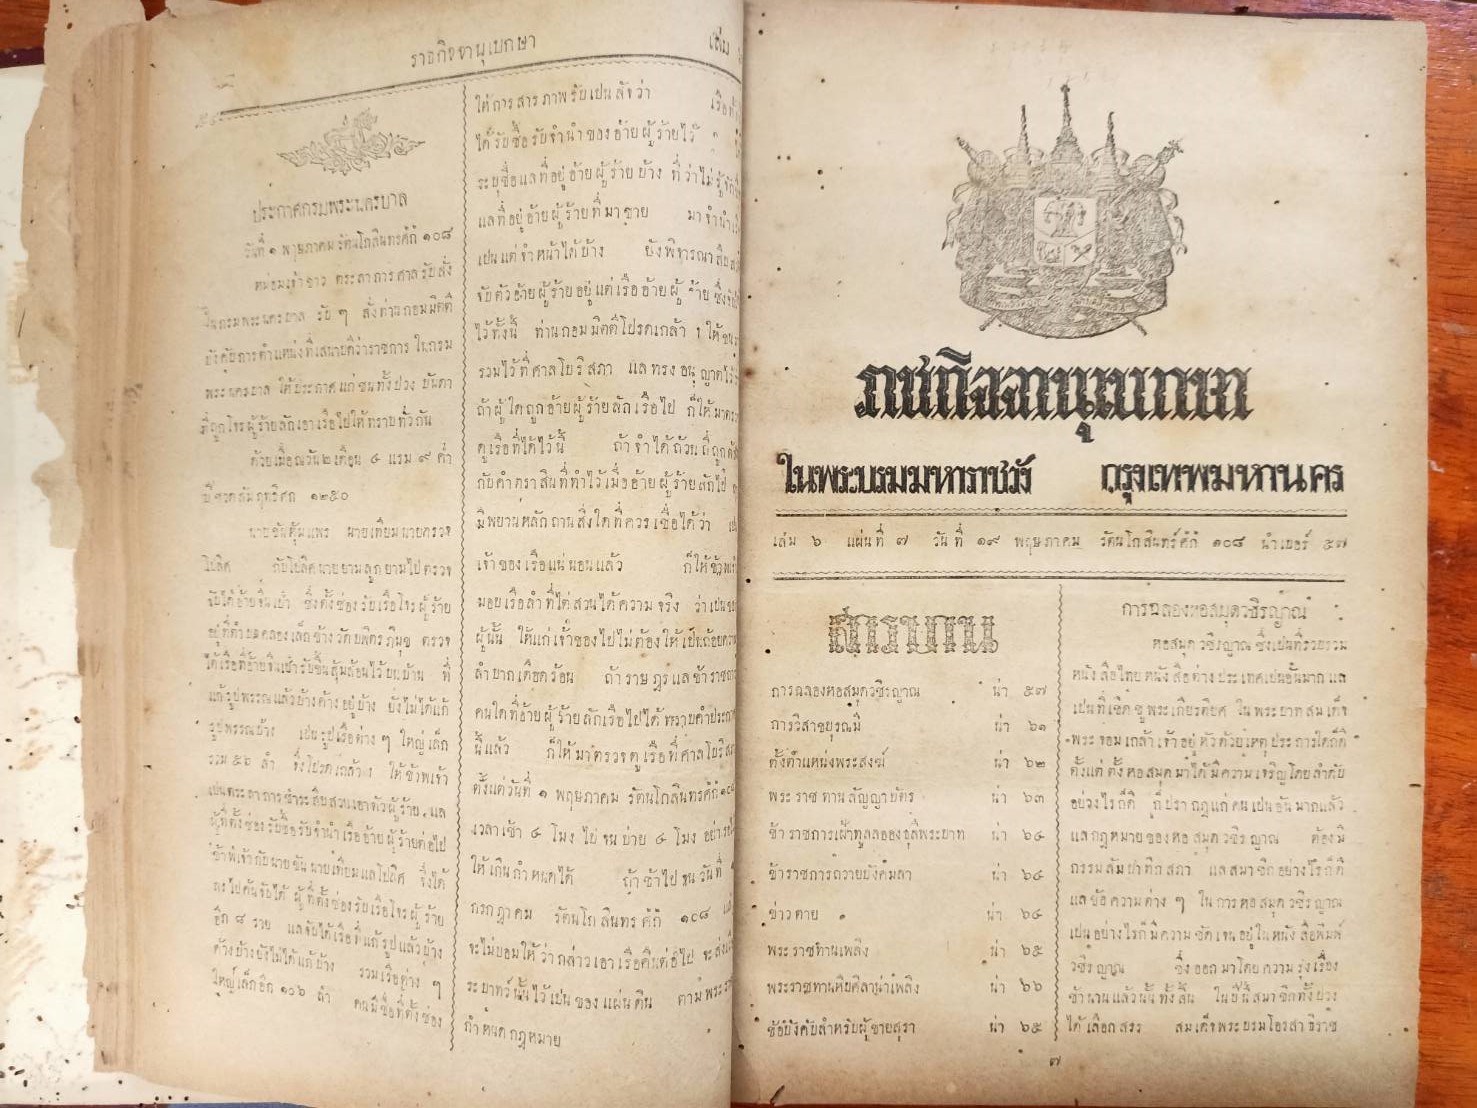 ราชกิจจานุเบกษา
เล่ม
๕๔
ประกาศกรมพระนครบาล
วันที่ ๑ พฤษภาคม รัตนโกสินทรศก๊ ๑๐๘
หม่อมเจ้าขาว ตระลาการศาลรับสั่ง
ในกรมพระนครบาล รับ ๆ สั่งท่านกอมมิตตี
บังคับการตำแหน่งที่เสนาบดีว่าราชการ ในกรม
พระนครบาล ให้ประกาศแก่ชนทั้งปวง บันดา
ที่ถูกโจรผู้ร้ายลักเอาเรือไปให้ทราบทั่วกัน
ด้วยเมื่อณวัน ๒ เดือน ๔ แรม ๙ ค่ำ
ปีชวดสัมฤทธิศก ๑๒๕๐
นายขันคุ้มแพร นายเทียมนายตรวจ
โปลิศ กับโปลิศนายยามลูกยามไปตรวจ
จับได้อ้ายจีนเปา ซึ่งตั้งซ่องรับเรือโจรผู้ร้าย
อยู่ที่ตำบลคลองเล็กข้างวัดบพิตรภิมุข ตรวจ
ได้เรือที่อ้ายจีนเปารับซื้นสุ้มส้อนไว้บนบ้าน ที่
แก้รูปพรรณแล้วบ้างค้างอยู่บ้าง ยังไม่ได้แก้
รูปพรรณบ้าง เปนรูปเรือต่าง ๆ ใหญ่เล็ก
รวม ๕๖ ลำ จึ่งโปรดเกล้า ฯ ให้ข้าพเจ้า
เปนตระลาการชำระสืบสวนเอาตัวผู้ร้าย, แล
ผู้ที่ตั้งซ่องรับซื้อรับจำนำเรืออ้ายผู้ร้ายต่อไป
ข้าพเจ้ากับนายขันนายเทียมแลโปลิศ จึ่งได้
ลงไปค้นจับได้ ผู้ที่ตั้งซ่องรับเรือโจรผู้ร้าย
อีก ๘ ราย แลจับได้เรือที่แก้รูปแล้วบ้าง
ค้างบ้างยังไม่ได้แก้บ้าง รวมเรือต่าง ๆ
ใหญ่เล็กอีก ๑๐๖ ลำ คนมีชื่อที่ตั้งซ่อง
ให้การสารภาพรับเปนสัจว่า เรือ
ได้รับซื้อรับจำนำของอ้ายผู้ร้ายไว้
ระบุชื่อแลที่อยู่อ้ายผู้ร้ายบ้าง ที่ว่าไม่รู้จัก
แลที่อยู่อ้ายผู้ร้ายที่มาขาย มาจำนำ
เปนแต่จำหน้าได้บ้าง ยังพิจารณาสืบ
จับตัวอ้ายผู้ร้ายอยู่แต่เรืออ้ายผู้ร้ายซึ่งจับ
ไว้ทั้งนี้ ท่านกอมมิตตีโปรดเกล้า ฯ ให้
รวมไว้ที่ศาลโบริสภา แลทรงอนุญาตไว้
ถ้าผู้ใดถูกอ้ายผู้ร้ายลักเรือไป ก็ให้มาตรวจ
ดูเรือที่ได้ไว้นี้ ถ้าจำได้ถ้วนถี่ถูก
กับคำตราสินที่ทำไว้เมื่ออ้ายผู้ร้ายลักไป
มีพยานหลักถานสิ่งใดที่ควรเชื่อได้ว่า
เจ้าของเรือแน่นอนแล้ว ก็ให้ข้าพเจ้า
มอบเรือลำที่ไต่สวนได้ความจริง ว่าเปน
ผู้นั้น ให้แก่เจ้าของไปไม่ต้องให้เปนถ้อยความ
ลำบากเดือดร้อน ถ้าราษฎรแลข้าราชการ
คนใดที่อ้ายผู้ร้ายลักเรือไปได้ทราบคำประกาศ
นี้แล้ว ก็ให้มาตรวจดูเรือที่ศาลโบริสภา
ตั้งแต่วันที่ ๑ พฤษภาคม รัตนโกสินทรศก๊ ๑๐๘
เวลาเช้า ๔ โมง ไปจนบ่าย ๔ โมง อย่า
ให้เกินกำหนดได้ ถ้าช้าไปจนวันที่
กรกฎาคม รัตนโกสินทรศก๊ ๑๐๘
จะไม่ยอมให้ว่ากล่าวเอาเรือคืนต่อไป จะ
ระบาทว์นั้นไว้เปนของแผ่นดิน ตามพระราช
กำหนดกฎหมาย
ราชกิจจานุเบกษา
ในพระบรมมหาราชวัง กรุงเทพมหานคร
เล่ม ๖ แผ่นที่ ๗ วันที่ ๑๙ พฤษภาคม รัตนโกสินทร์ศก๊ ๑๐๘ นำเบอร์ ๕๗
สารบาน
การฉลองหอสมุดวชิรญาณ น่า ๕๗
การวิสาขบูรณมี น่า ๖๑
ตั้งตำแหน่งพระสงฆ์ น่า ๖๒
พระราชทานสัญญาบัตร น่า ๖๓
ข้าราชการเฝ้าทูลลอองธุลีพระบาท น่า ๖๔
ข้าราชการถวายบังคมลา น่า ๖๔
ข่าวตาย น่า ๖๔
พระราชทานเพลิง น่า ๖๕
พระราชทานหีบศิลาน่าเพลิง น่า ๖๖
ข้อบังคับสำหรับผู้ขายสุรา น่า ๖๕
การฉลองหอสมุดวชิรญาณ
หอสมุดวชิรญาณ ซึ่งเปนที่รวบรวม
หนังสือไทยหนังสือต่างประเทศเปนอันมาก แล
เปนที่เชิดชูพระเกียรติยศ ในพระบาทสมเด็จ
พระจอมเกล้าเจ้าอยู่หัวด้วยเหตุประการใดก็ดี
ตั้งแต่ตั้งหอสมุดมาได้มีความเจริญโดยลำดับ
อย่างไรก็ดี ก็ปรากฏแก่คนเปนอันมากแล้ว
แลกฎหมายของหอสมุดวชิรญาณ ต้องมี
กรรมสัมปาทิกสภา แลสมาชิกอย่างไรก็ดี
แลข้อความต่าง ๆ ในการหอสมุดวชิรญาณ
เปนอย่างไรก็มีความชัดเจนอยู่ในหนังสือพิมพ์
วชิรญาณ ซึ่งออกมาโดยความรุ่งเรือง
ช้านานแล้วนั้นทั้งสิ้น ในปีนี้สมาชิกทั้งปวง
ได้เลือกสรร สมเด็จพระบรมโอรสาธิราช
๗